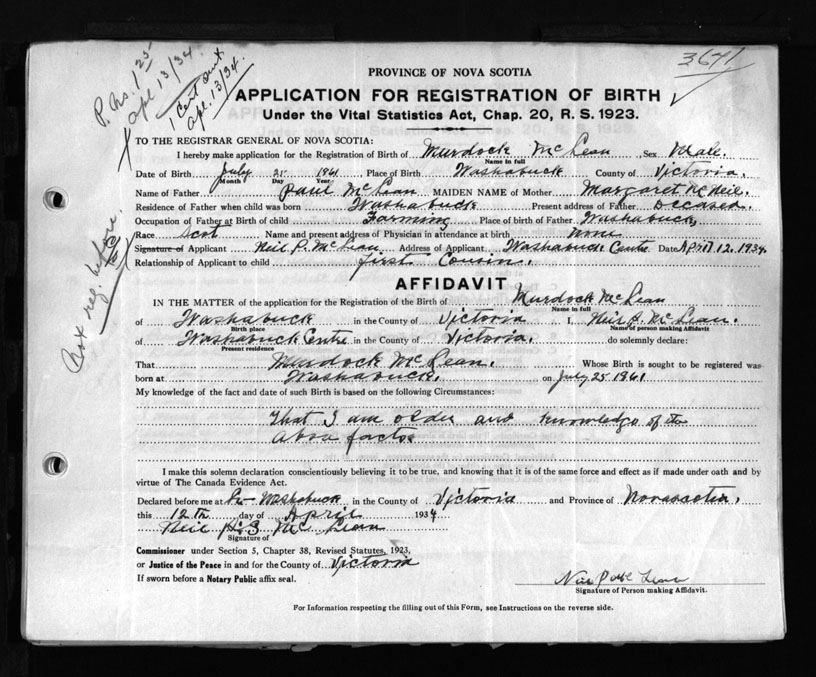 P. No. 1 25
Apl 13/34
1 Cent out
Apl. 13/34.
3671
PROVINCE OF NOVA SCOTIA
APPLICATION FOR REGISTRATION OF BIRTH
Under the Vital Statistics Act, Chap. 20, R. S. 1923.
TO THE REGISTRAR GENERAL OF NOVA SCOTIA:
I hereby make application for the Registration of Birth of Murdock McLean Sex Male.
Name in full
Date of Birth July 25 1861 Place of Birth Washabuck County of Victoria.
Month Day Year
Name of Father Paul McLean MAIDEN NAME of Mother Margaret McNeil.
Residence of Father when child was born Washabuck Present address of Father Decased.
Occupation of Father at Birth of child Farming Place of birth of Father Washabuck,
Race Scot Name and present address of Physician in attendance at birth none
Signature of Applicant Neil P. McLean Address of Applicant Washabuck Centre Date April 12, 1934.
Relationship of Applicant to child first Cousin.
Not reg. before
AFFIDAVIT
IN THE MATTER of the application for the Registration of the Birth of Murdock McLean
Name in full
of Washabuck in the County of Victoria I, Neil P. McLean.
Birth place Name of person making Affidavit
of Washabuck Centre in the County of Victoria. do solemnly declare:
Present residence
That Murdock McLean. Whose Birth is sought to be registered was
born at Washabuck. on July 25 1861
My knowledge of the fact and date of such Birth is based on the following Circumstances:
That I am older and knowledge of the
abov factos
I make this solemn declaration conscientiously believing it to be true, and knowing that it is of the same force and effect as if made under oath and by
virtue of The Canada Evidence Act.
Declared before me at Washabuck in the County of Victoria and Province of Novascotia.
this 12th day of April 1934
Neil H. S. McLean
Signature of
Commissioner under Section 5, Chapter 38, Revised Statutes, 1923,
or Justice of the Peace in and for the County of Victoria
If sworn before a Notary Public affix seal.
Neil P McLean
Signature of Person making Affidavit.
For Information respecting the filling out of this Form, see Instructions on the reverse side.